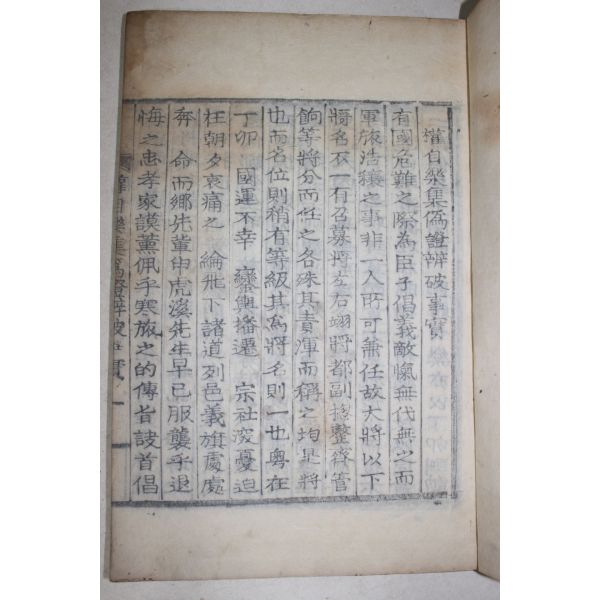 權自樂集僞證辨破事實
有國危難之際為臣子倡義敵愾無代無之而
軍旅浩穰之事非一人所可兼任故大將以下
將名不一有召募將左右翊將都副摠整齊管
餉等將分而任之各殊其責渾而稱之均是將
也而名位則稍有等級其為將名則一也粤在
丁卯 國運不幸 鑾輿播遷 宗社深憂迫
在朝夕哀痛之 綸飛下諸道列邑義旗處處
奔 命而鄉先輩申虎溪先生早已服襲乎退
悔之忠孝家謨薰佩乎寒旅之的傳旨詖首倡
權自樂集僞證辨破事實 一